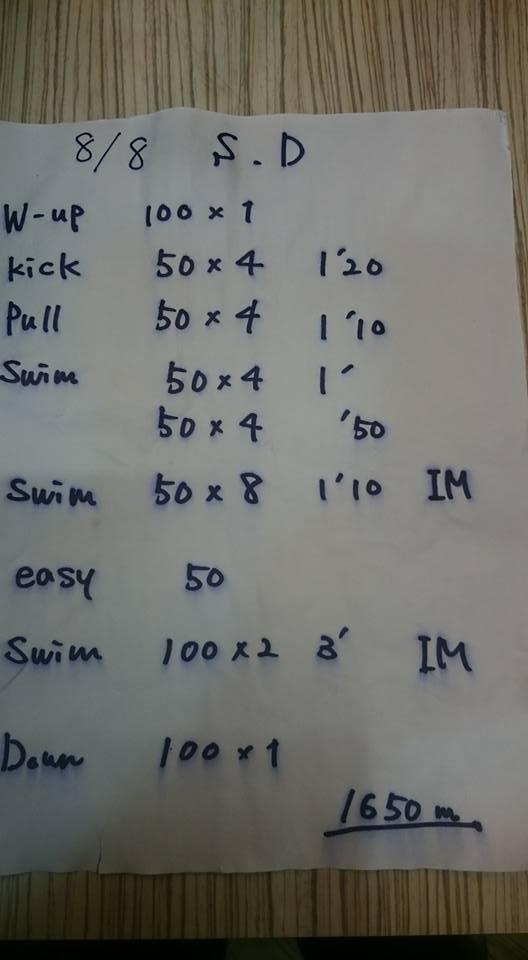 8/8 S.D
W-up 100 × 1
kick 50 × 4 1'20
Pull 50 × 4 1'10
Swim 50 × 4 1'
50 × 4 '50
Swim 50 × 8 1'10 IM
easy 50
Swim 100 × 2 3' IM
Down 100 × 1
1650 m